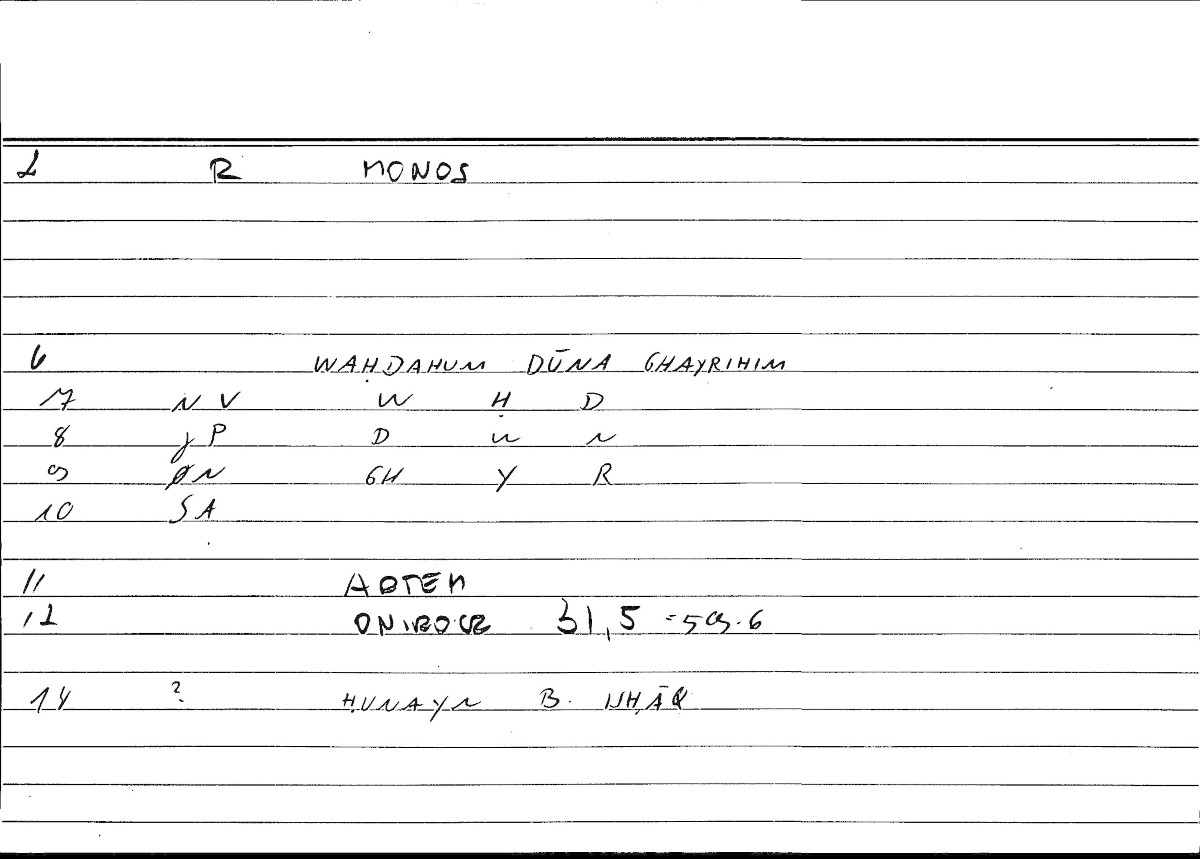 2 R MONOS
6 WAḤDAHUM DŪNA GHAYRIHIM
7 NV W Ḥ D
8 JP D W N
9 ØN GH Y R
10 SA
11 ARTEM
12 ONIROCR 31,5 =59.6
14 ? ḤUNAYN B. ISḤĀQ